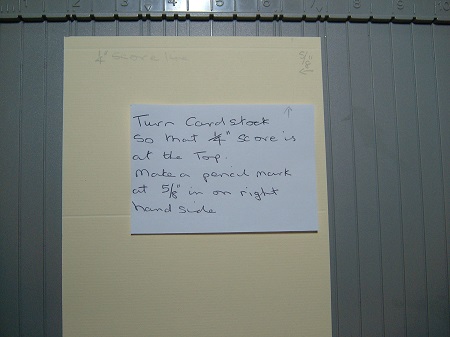 1/4" Score line
5/8"
Turn Cardstock
So that 1/4" score is
at the Top.
Make a pencil mark
at 5/8" in on right
hand side